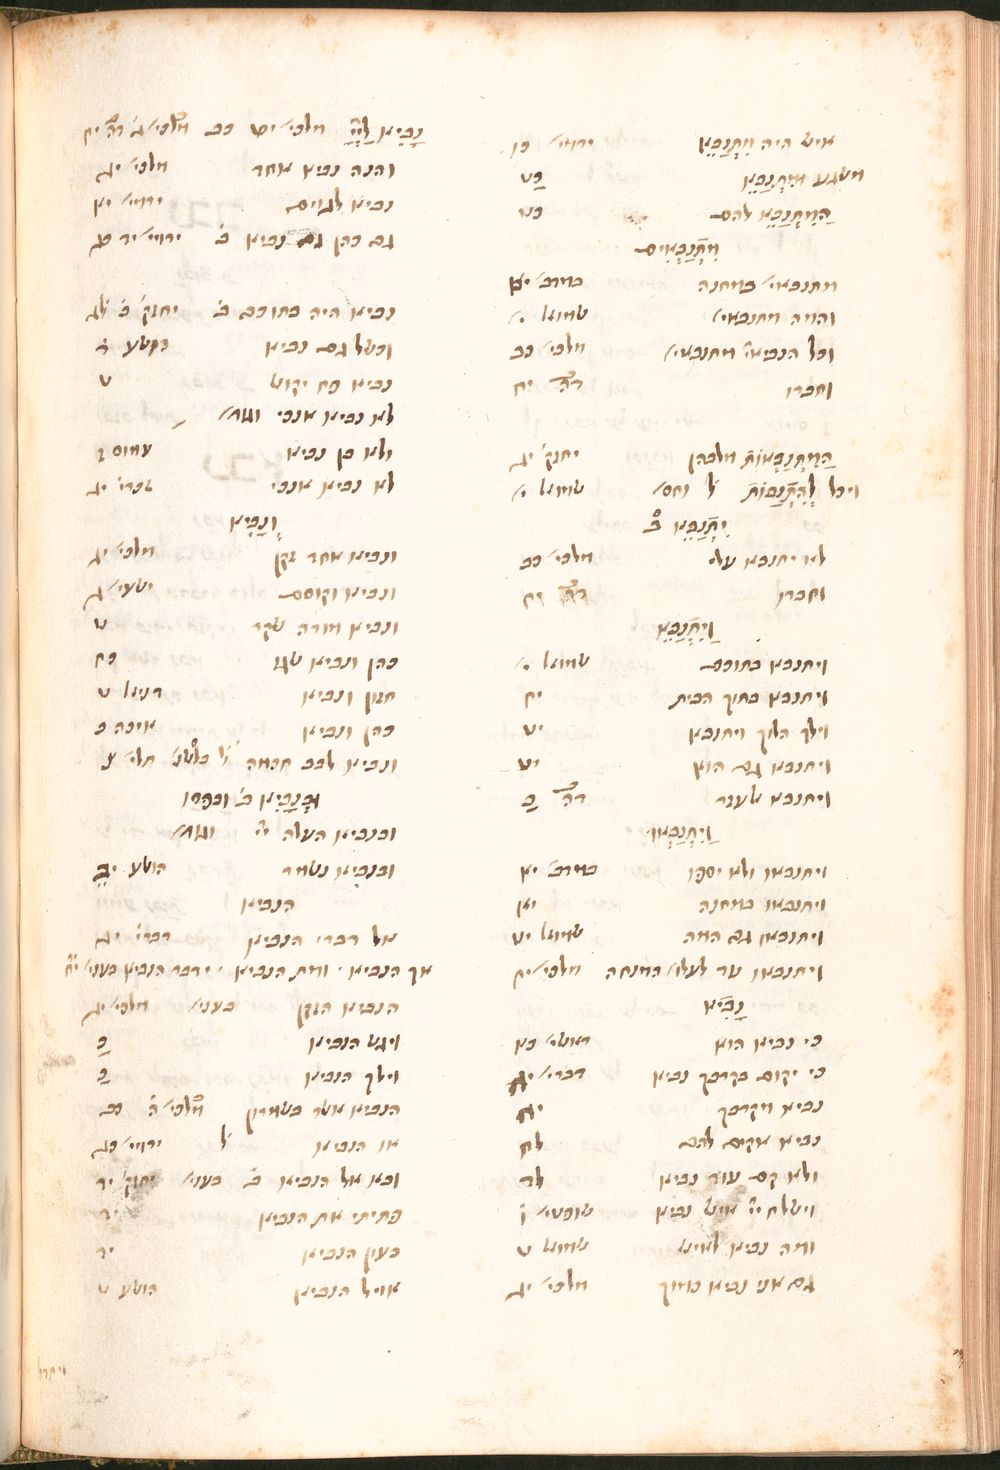 איש היה מִתְנַבֵּא ירמי׳ כו
משגע ומִתְנַבֵּא כט
הַמִּתְנַבֵּא להם כט
מִתְנַבְּאִים
מתנבאי׳ במחנה במדב׳ יא
והמה מתנבאי׳ שמואל י׳
וכל הנביאי׳ מתנבאי׳ מלכי׳ כב
וחברו דה יח
הַמִּתְנַבְּאוֹת מלבהן יחזק׳ יג
ויכל מֵהִתְנַבּוֹת ל׳ וחס׳ שמואל י׳
יִתְנַבֵּא ב׳
לא יתנבא עלי מלכי׳ כב
וחברו דה יח
וַיִּתְנַבֵּא
ויתנבא בתוכם שמואל י׳
ויתנבא בתוך הבית יח
וילך הלוך ויתנבא יט
ויתנבא גם הוא יט
ויתנבא אלעזר דה כ
וַיִּתְנַבְּאוּ
ויתנבאו ולא יספו במדב׳ יא
ויתנבאו במחנה יא
ויתנבאו גם המה שמואל יט
ויתנבאו עד לעלו׳ המנחה מלכי׳ יח
נָבִיא
כי נביא הוא ראשי׳ כא
כי יקום בקרבך נביא דברי׳ יג
נביא מקרבך יח
נביא אקים להם
ולא קם עוד נביא לד
וישלח יי׳ איש נביא שופטי׳ ו
ומה נביא לאיש שמואל ט
גם אני נביא כמוך מלכי׳ יג
נָבִיא לַייָ מלכי׳ יש כב מלכי׳ ג׳ דה יח
והנה נביא אחד מלכי׳
נביא לגוים ירמי׳
גם כהן גם נביא ב׳ ירמי׳ יד כג
נביא היה בתוכם ב׳ יחזק׳ ב׳ לג
וכשל גם נביא הושע ד
נביא פח יקוש ט
לא נביא אנכי וגו׳
ולא בן נביא עמוס ז
לא נביא אנכי זכרי׳ יג
וְנָבִיא
ונביא אחד זקן מלכי׳ יג
ונביא וקוסם ישעי׳ ג
ונביא מורה שקר ט
כהן ונביא שגו כח
חזון ונביא דניאל ט
כהן ונביא איכה ב
ונביא לבב חכמה ל׳ בלשנ׳ תלי׳ צ
וּבְנָבִיא ב׳ ובפסו
ובנביא העלה יי׳ וגו׳
ובנביא נשמר הושע יב
הנביא
אל דברי הנביא דברי׳ יג
אך הנביא׳ ומת הנביא׳ ידבר הנביא בעני׳ יח
הנביא הזקן בעני׳ מלכי׳ יג
ויגש הנביא כ
וילך הנביא כ
הנביא אשר בשמרון מלכי׳ ה
או הנביא ל׳ ירמי׳ כג
ובא אל הנביא ב׳ בעני׳ יחזק׳ יד
פתיתי את הנביא יד
כעון הנביא יד
אויל הנביא הושע ט